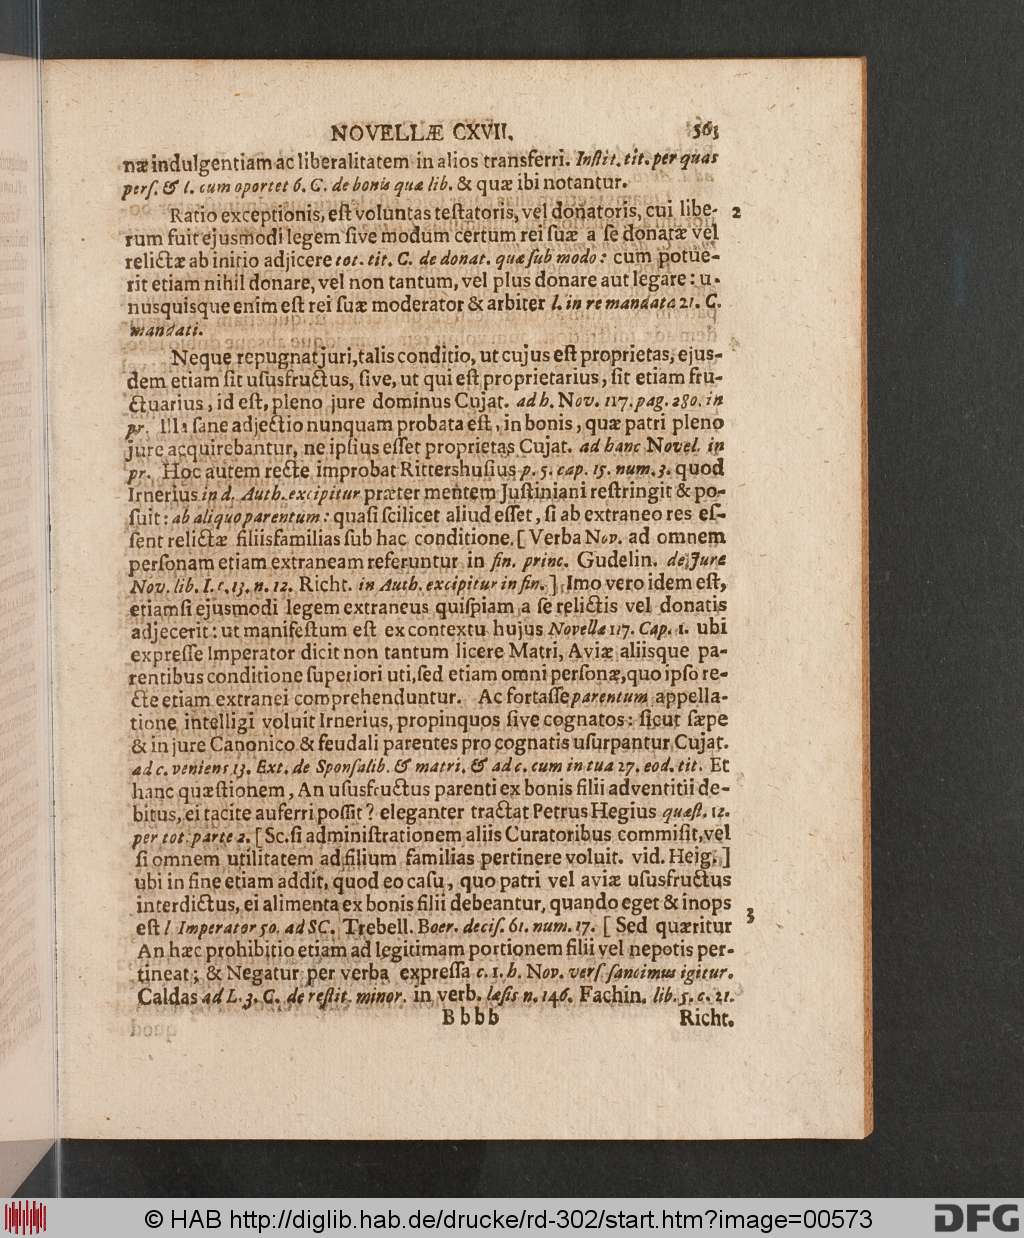 NOVELLÆ CXVII. 563
næ indulgentiam ac liberalitatem in alios transferri. Inſtit. tit. per quas
perſ. & l. cum oportet 6. C. de bonis quæ lib. & quæ ibi notantur.
Ratio exceptionis, eſt voluntas teſtatoris, vel donatoris, cui libe- 2
rum fuit ejusmodi legem ſive modum certum rei ſuæ a ſe donatæ vel
relictæ ab initio adjicere tot. tit. C. de donat. quæ ſub modo: cum potue-
rit etiam nihil donare, vel non tantum, vel plus donare aut legare: u-
nusquisque enim eſt rei ſuæ moderator & arbiter l. in re mandata 21. C.
mandati.
Neque repugnat juri, talis conditio, ut cujus eſt proprietas, ejus-
dem etiam ſit uſusfructus, ſive, ut qui eſt proprietarius, ſit etiam fru-
ctuarius, id eſt, pleno jure dominus Cujat. ad h. Nov. 117. pag. 280. in
pr. Illa ſane adjectio nunquam probata eſt, in bonis, quæ patri pleno
jure acquirebantur, ne ipſius eſſet proprietas Cujat. ad hanc Novel. in
pr. Hoc autem recte improbat Rittershuſius p. 5. cap. 15. num. 3. quod
Irnerius in d. Auth. excipitur præter mentem Juſtiniani reſtringit & po-
ſuit: ab aliquo parentum: quaſi ſcilicet aliud eſſet, ſi ab extraneo res eſ-
ſent relictæ filiisfamilias ſub hac conditione. [Verba Nov. ad omnem
perſonam etiam extraneam referuntur in fin. princ. Gudelin. de Jure
Nov. lib. I. c. 13. n. 12. Richt. in Auth. excipitur in fin.] Imo vero idem eſt,
etiamſi ejusmodi legem extraneus quiſpiam a ſe relictis vel donatis
adjecerit: ut manifeſtum eſt ex contextu hujus Novella 117. Cap. 1. ubi
expreſſe Imperator dicit non tantum licere Matri, Aviæ aliisque pa-
rentibus conditione ſuperiori uti, ſed etiam omni perſonæ, quo ipſo re-
cte etiam extranei comprehenduntur. Ac fortaſſe parentum appella-
tione intelligi voluit Irnerius, propinquos ſive cognatos: ſicut ſæpe
& in jure Canonico & feudali parentes pro cognatis uſurpantur Cujat.
ad c. veniens 13. Ext. de Sponſalib. & matri. & ad c. cum in tua 27. eod. tit. Et
hanc quæſtionem, An uſusfructus parenti ex bonis filii adventitii de-
bitus, ei tacite auferri poſſit? eleganter tractat Petrus Hegius quæſt. 12.
per tot. parte 2. [Sc. ſi adminiſtrationem aliis Curatoribus commiſit, vel
ſi omnem utilitatem ad filium familias pertinere voluit. vid. Heig.]
ubi in fine etiam addit, quod eo caſu, quo patri vel aviæ uſusfructus
interdictus, ei alimenta ex bonis filii debeantur, quando eget & inops
eſt l Imperator 50. ad SC. Trebell. Boer. deciſ. 61. num. 17. [Sed quæritur 3
An hæc prohibitio etiam ad legitimam portionem filii vel nepotis per-
tineat; & Negatur per verba expreſſa c. 1. h. Nov. verſ. ſancimus igitur.
Caldas ad L. 3. C. de reſtit. minor. in verb. læſis n. 146. Fachin. lib. 5. c. 21.
Bbbb Richt.
© HAB http://diglib.hab.de/drucke/rd-302/start.htm?image=00573 DFG